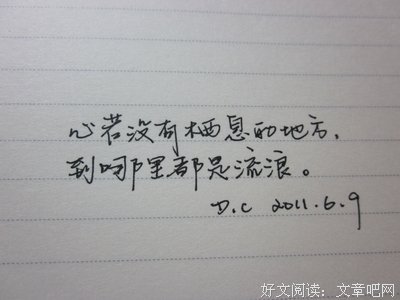 心若没有栖息的地方，
到哪里都是流浪。
D.C 2011.6.9
好文阅读：文章吧网